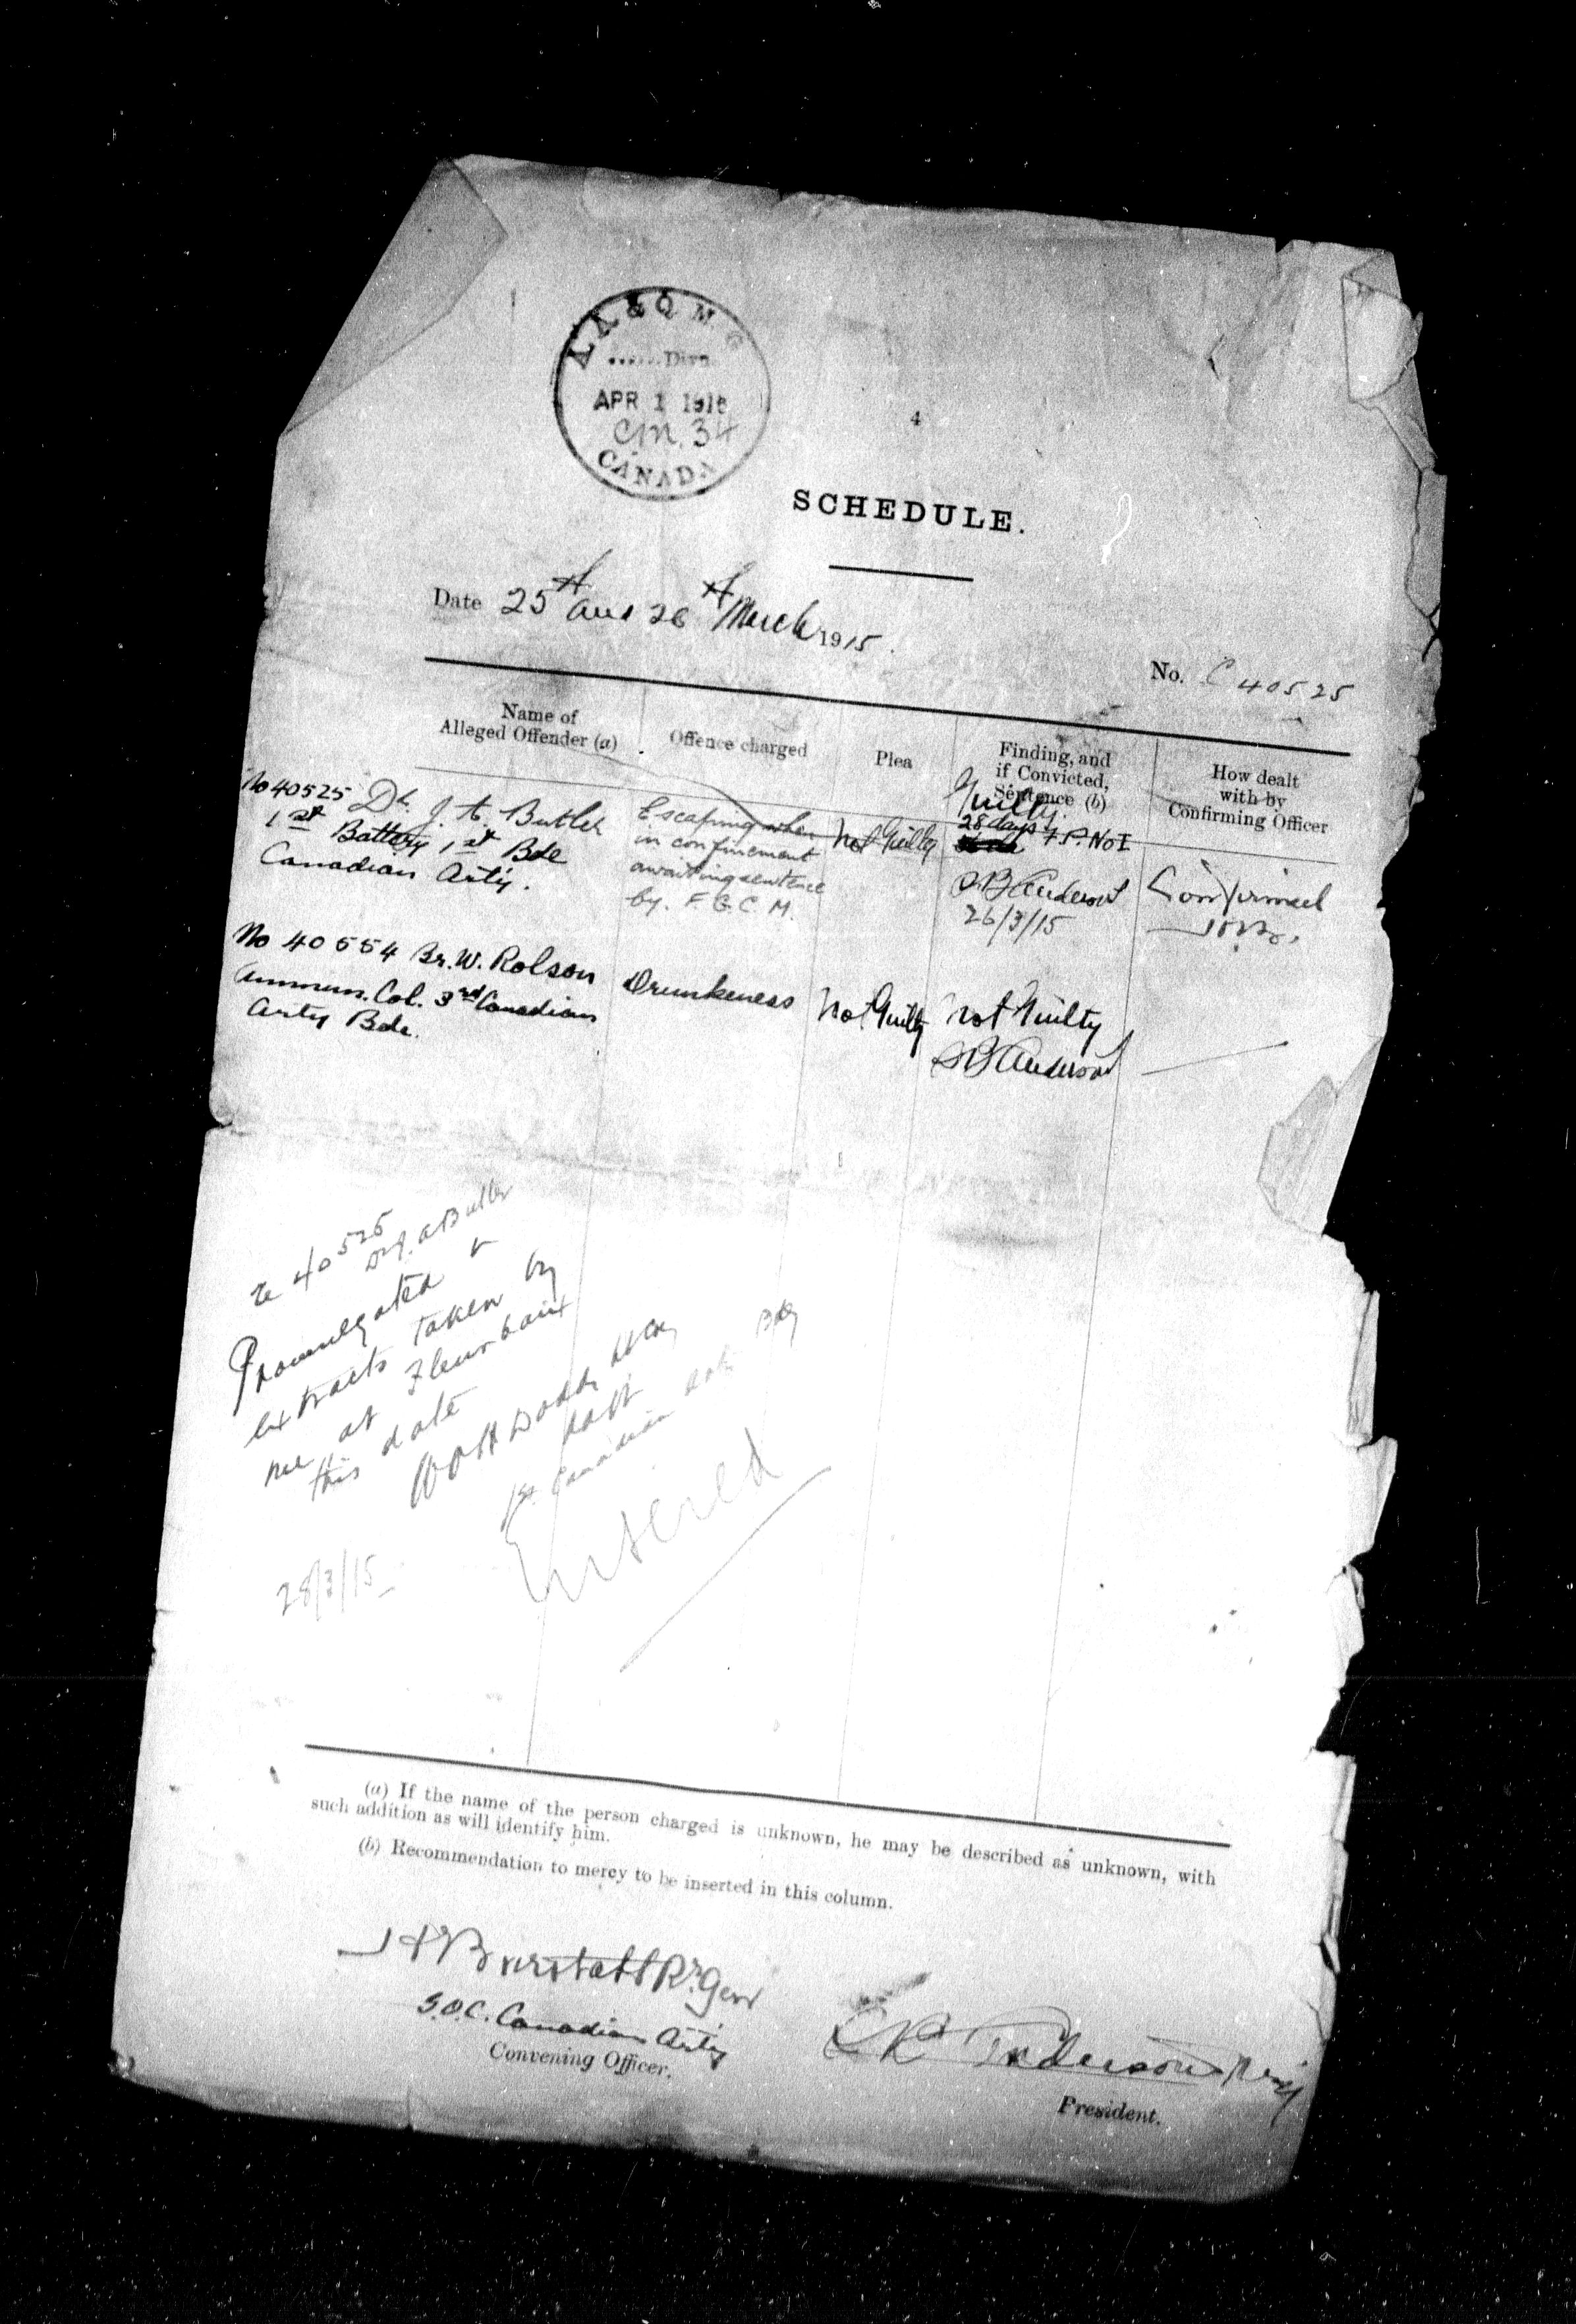 A.A. & Q.M.G
......Divn
APR 1 1915
C.M. 34
CANADA
4
SCHEDULE.
Date 25th and 26th March 1915.
No. C 40525
Name of
Alleged Offender (a)
Offence charged
Plea
Finding, and
if Convicted,
Sentence (b)
How dealt
with by
Confirming Officer
No 40525 Dr. J. A. Butler
1st Battery, 1st Bde
Canadian Arty.
Escaping when
in confinement
awaiting sentence
by. F.G.C.M.
Not Guilty
Guilty.
28 days F.P. No I
Anderson
26/3/15
Confirmed
No 40554 Br. W. Rolson
Ammun. Col. 3rd Canadian
Arty Bde.
Drunkeness
Not Guilty
Not Guilty
Anderson
re 40525
Dr J. A Butler
Promulgated &
extracts taken by
me at Fleurbaix
this date
Capt
1st. Canadian Bde
28/3/15
Entered
(a) If the name of the person charged is unknown, he may be described as unknown, with
such addition as will identify him.
(b) Recommendation to mercy to be inserted in this column.
H E Burstall Br. Gen
G.O.C. Canadian Arty
Convening Officer.
Anderson Maj
President.